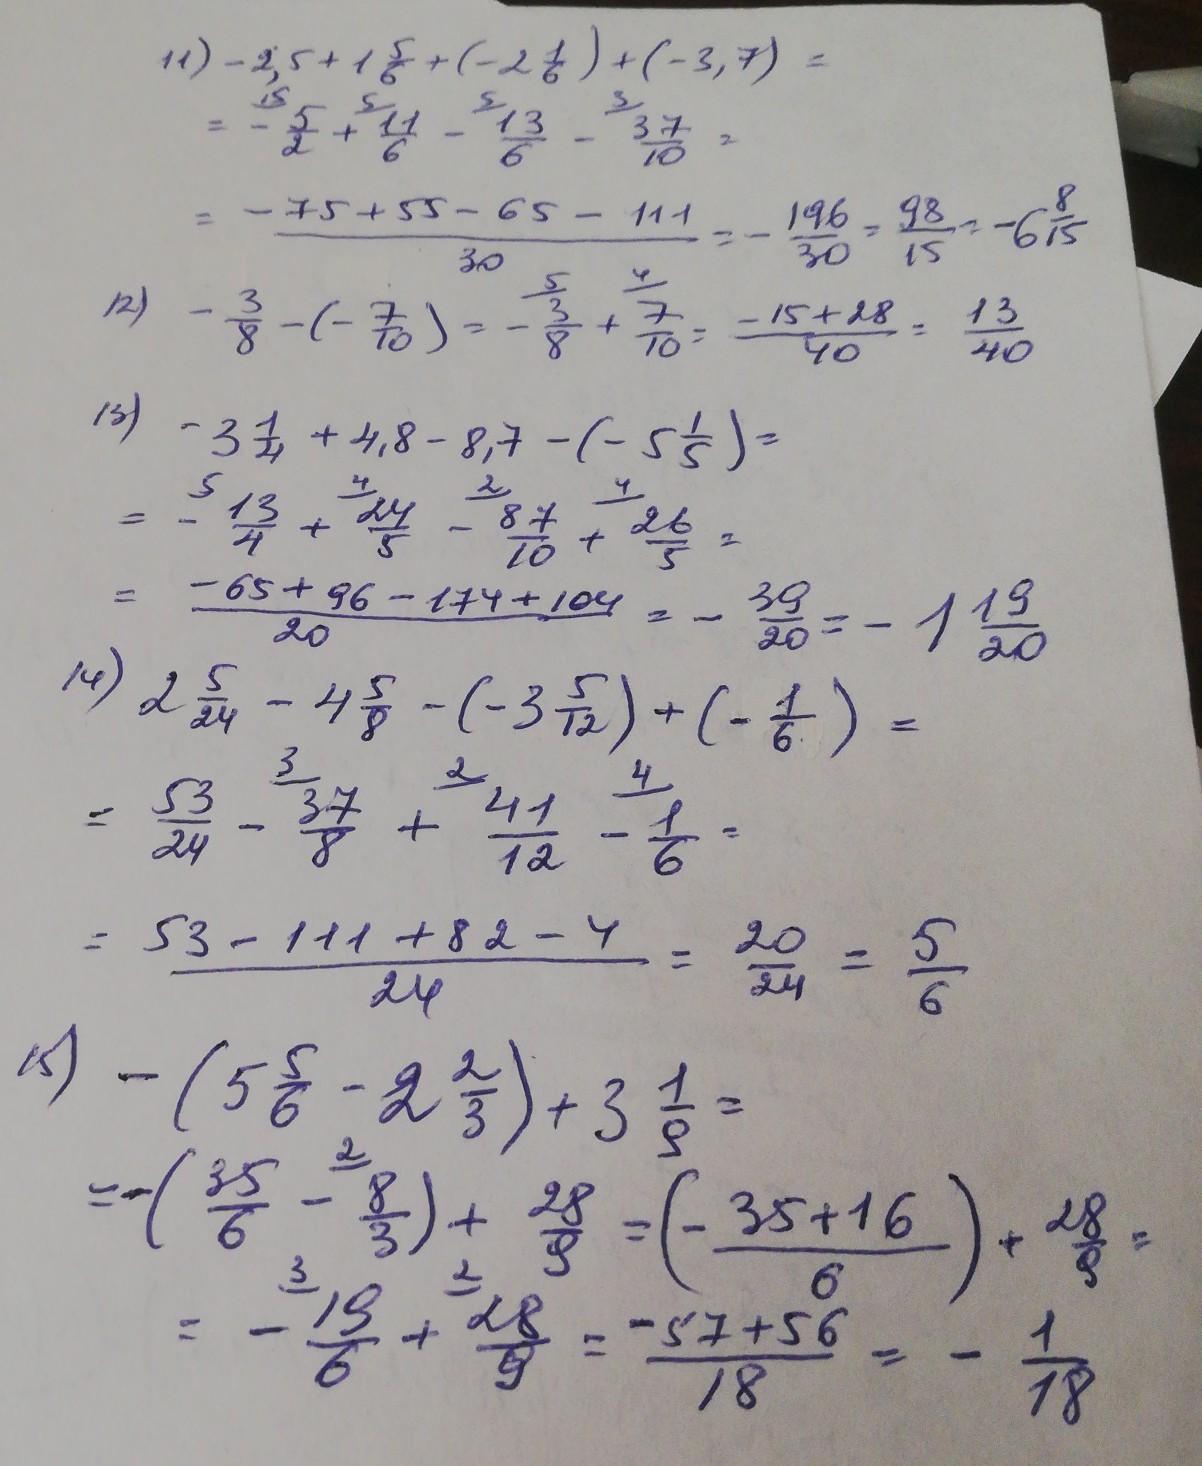 11) -2,5 + 1 5/6 + (-2 1/6) + (-3,7) =
= - 15 5/2 + 5 11/6 - 5 13/6 - 3 37/10 =
= -75+55-65-111/30 = - 196/30 = 98/15 = -6 8/15
12) - 3/8 - (- 7/10) = - 5 3/8 + 4 7/10 = -15+28/40 = 13/40
13) -3 1/4 + 4,8 - 8,7 - (-5 1/5) =
= - 5 13/4 + 4 24/5 - 2 87/10 + 4 26/5 =
= -65+96-174+104/20 = - 39/20 = - 1 19/20
14) 2 5/24 - 4 5/8 - (-3 5/12) + (- 1/6) =
= 53/24 - 3 37/8 + 2 41/12 - 4 1/6 =
= 53-111+82-4/24 = 20/24 = 5/6
15) - (5 5/6 - 2 2/3) + 3 1/9 =
= -(35/6 - 2 8/3) + 28/9 = (- 35+16/6) + 28/9 =
= - 3 19/6 + 2 28/9 = -57+56/18 = - 1/18